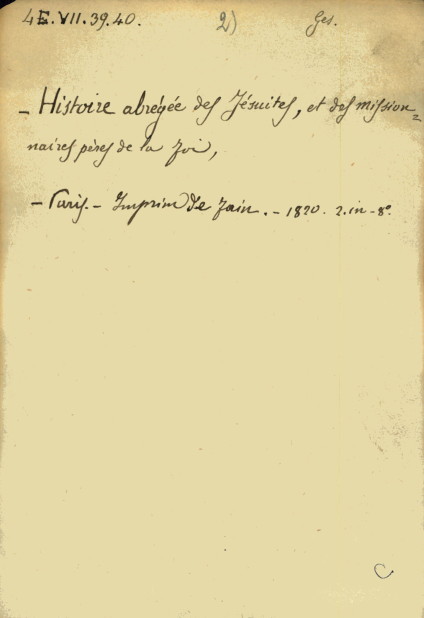 4E.VII.39.40. 2) Ges.
- Histoire abrégée des Jésuites, et des mission=
naires pères de la foi,
- Paris. - Imprim de Fain. - 1820. 2. in-8°.
C